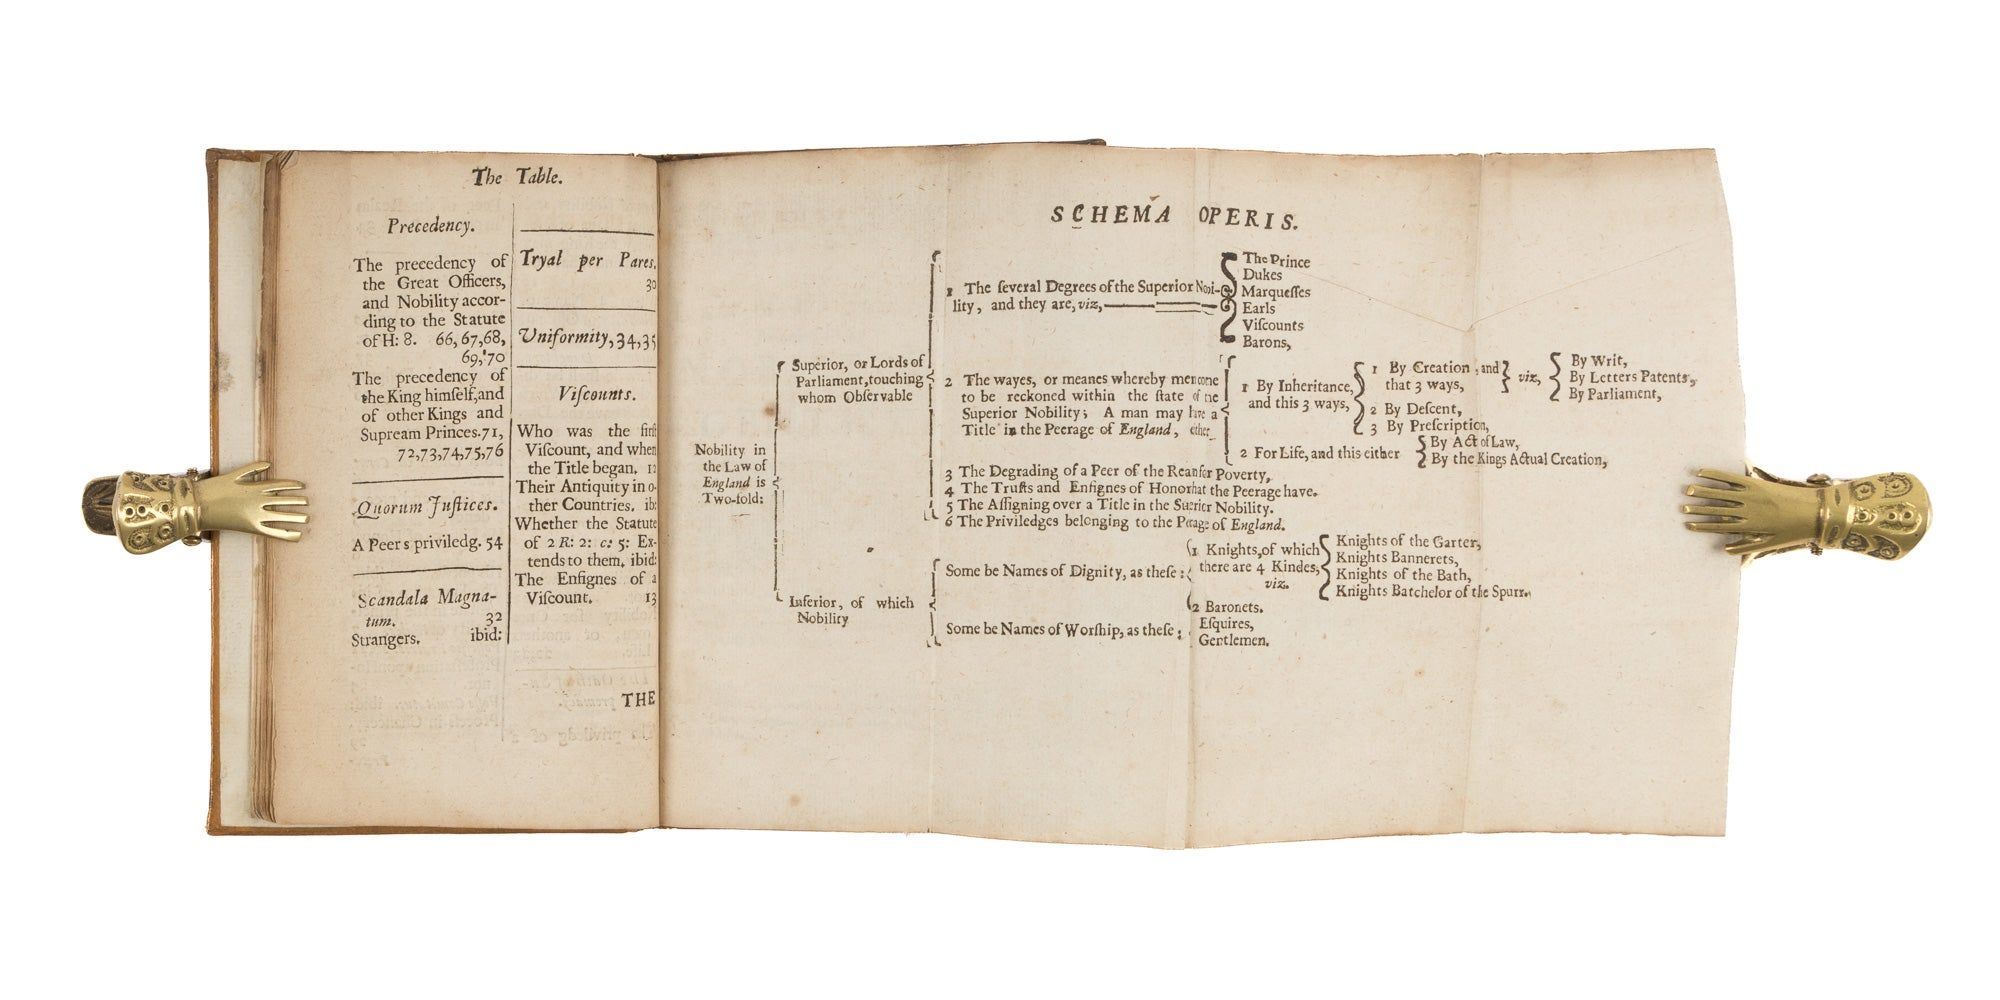 The Table.
Precedency.
The precedency of
the Great Officers,
and Nobility accor-
ding to the Statute
of H: 8. 66, 67, 68,
69, 70
The precedency of
the King himself, and
of other Kings and
Supream Princes. 71,
72, 73, 74, 75, 76
Quorum Juſtices.
A Peers priviledg. 54
Scandala Magna-
tum. 32
Strangers. ibid:
Tryal per Pares.
30
Uniformity, 34, 35
Viſcounts.
Who was the firſt
Viſcount, and when
the Title began. 12
Their Antiquity in o-
ther Countries. ib:
Whether the Statute
of 2 R: 2: c: 5: Ex-
tends to them. ibid:
The Enſignes of a
Viſcount. 13
THE
SCHEMA OPERIS.
Nobility in
the Law of
England is
Two-fold:
Superior, or Lords of
Parliament, touching
whom Obſervable
1 The ſeveral Degrees of the Superior Nobi-
lity, and they are, viz,
The Prince
Dukes
Marqueſſes
Earls
Viſcounts
Barons,
2 The wayes, or meanes whereby men come
to be reckoned within the ſtate of the
Superior Nobility; A man may have a
Title in the Peerage of England, either
1 By Inheritance,
and this 3 ways,
1 By Creation, and
that 3 ways,
viz,
By Writ,
By Letters Patents,
By Parliament,
2 By Deſcent,
3 By Preſcription,
2 For Life, and this either
By Act of Law,
By the Kings Actual Creation,
3 The Degrading of a Peer of the for Poverty,
4 The Truſts and Enſignes of Honor that the Peerage have.
5 The Aſſigning over a Title in the Superior Nobility.
6 The Priviledges belonging to the Peerage of England.
Inferior, of which
Nobility
Some be Names of Dignity, as theſe:
1 Knights, of which
there are 4 Kindes,
viz.
Knights of the Garter,
Knights Bannerets,
Knights of the Bath,
Knights Batchelor of the Spurr.
2 Baronets.
Some be Names of Worſhip, as theſe:
Eſquires,
Gentlemen.